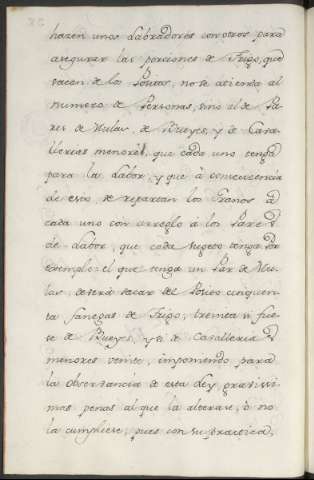 hazen unos Labradores con otros para
asegurar las porciones de Trigo, que
sacan de los Positos, no se atienda al
numero de Personas, sino al de Pa-
res de Mulas, de Bueyes, y de Cava-
llerias menores, que cada uno tenga
para la Labor, y que à conseqüencia
de esto se repartan los Granos à
cada uno con arreglo à los Pares
de Labor, que cada sugeto tenga por
exemplo: el que tenga un Par de Mu-
las, deverà sacar del Posito cinquen-
ta fanegas de Trigo, treinta si fue-
se de Bueyes, y si de Cavalleria
menores veinte, imponiendo para
la observancia de esta Ley gravisi-
mas penas al que la alterase, ò no
la cumpliese, pues con su practica,